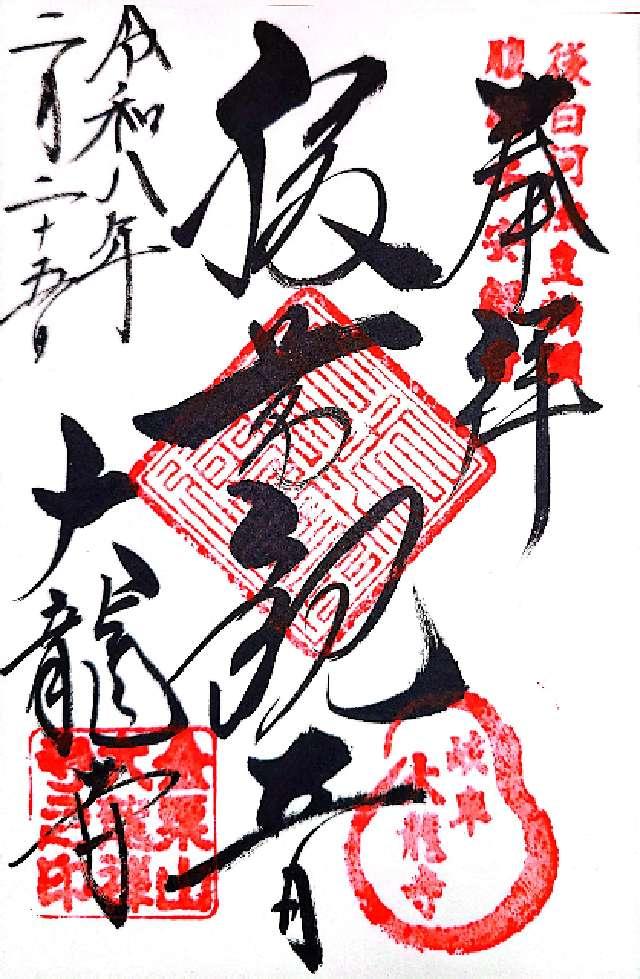 奉拝
後白河法皇勅願
腹帯観音
岐阜
大龍寺
令和八年
二月二十五日
大龍寺
金粟山
大龍禅
寺之印